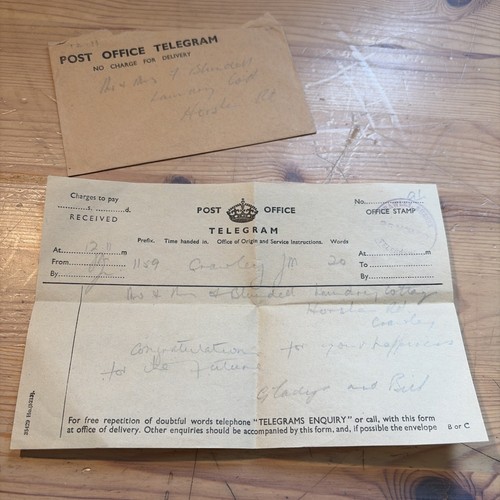 POST OFFICE TELEGRAM
NO CHARGE FOR DELIVERY
Mr & Mrs
Laundry
Horsham Rd
Charges to pay
s. d.
RECEIVED
POST OFFICE
TELEGRAM
No.
OFFICE STAMP
Prefix. Time handed in. Office of Origin and Service Instructions. Words
At
From
By
1159 Crawley 20
At
To
By
Mr & Mrs Blundell Laundry Cottage
Horsham Rd
Crawley
Congratulations for your happiness
for the future
Gladys and Bert
For free repetition of doubtful words telephone "TELEGRAMS ENQUIRY" or call, with this form
at office of delivery. Other enquiries should be accompanied by this form, and, if possible the envelope
B or C